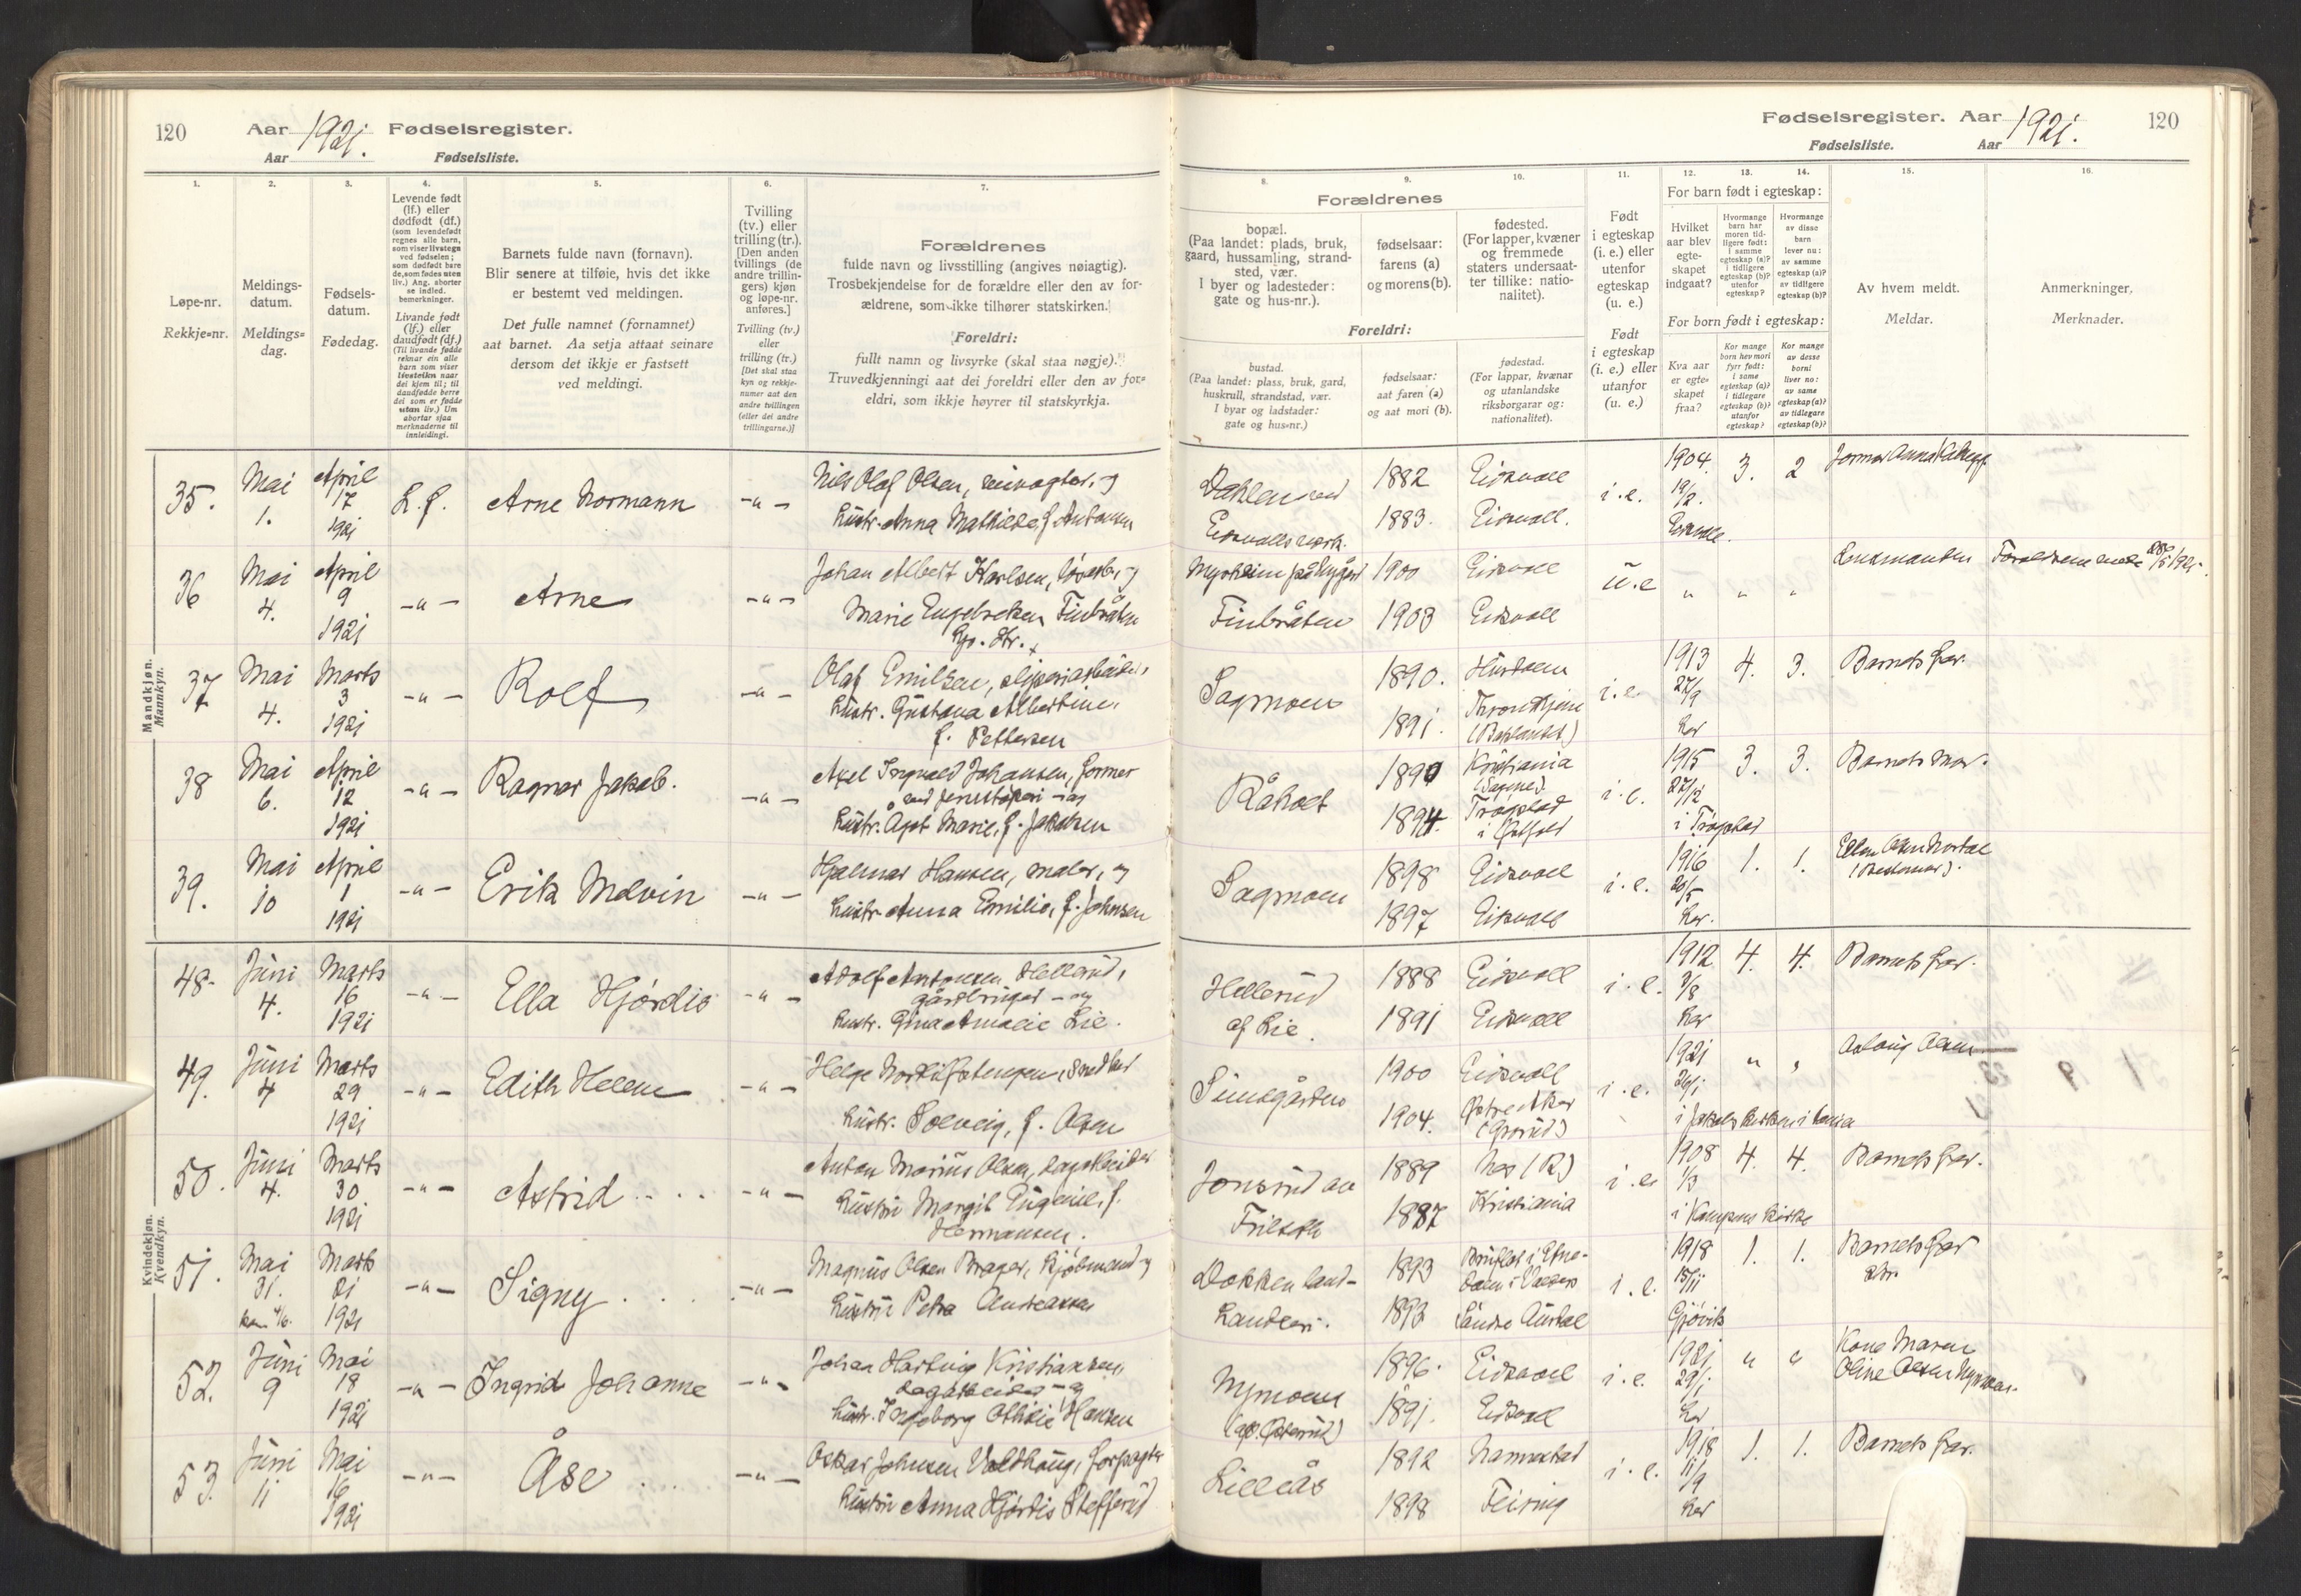 120 Aar 1921. Fødselsregister.
Aar Fødselsliste.
Fødselsregister. Aar 1921. 120
Fødselsliste. Aar
1.
Løpe-nr.
Rekkje-nr.
2.
Meldings-
datum.
Meldings-
dag.
3.
Fødsels-
datum.
Fødedag.
4.
Levende født
(lf.) eller
dødfødt (df.)
(som levendefødt
regnes alle barn,
som viser livstegn
ved fødselen;
som dødfødt bare
de, som fødes uten
liv.) Ang. aborter
se indled.
bemerkninger.
Livande født
(lf.) eller
daudfødt (df.)
(Til livande fødde
reknar ein alle
barn som viser
livsteikn naar
dei kjem til; til
daudfødde berre
dei som er fødde
utan liv.) Um
abortar sjaa
merknaderne til
innleidingi.
5.
Barnets fulde navn (fornavn).
Blir senere at tilføie, hvis det ikke
er bestemt ved meldingen.
Det fulle namnet (fornamnet)
aat barnet. Aa setja attaat seinare
dersom det ikkje er fastsett
ved meldingi.
6.
Tvilling
(tv.) eller
trilling (tr.).
[Den anden
tvillings (de
andre trillin-
gers) kjøn
og løpe-nr.
anføres.]
Tvilling (tv.)
eller
trilling (tr.)
[Det skal staa
kyn og rekkje-
numer aat den
andre tvillingen
(eller dei andre
trillingarne.)]
7.
Forældrenes
fulde navn og livsstilling (angives nøiagtig).
Trosbekjendelse for de forældre eller den av for-
ældrene, som ikke tilhører statskirken.
Foreldri:
fullt namn og livsyrke (skal staa nøgje).
Truvedkjenningi aat dei foreldri eller den av for-
eldri, som ikkje høyrer til statskyrkja.
Forældrenes
8.
bopæl.
(Paa landet: plads, bruk,
gaard, hussamling, strand-
sted, vær.
I byer og ladesteder:
gate og hus-nr.).
9.
fødselsaar:
farens (a)
og morens (b).
10.
fødested.
(For lapper, kvæner
og fremmede
staters undersaat-
ter tillike: natio-
nalitet).
Foreldri:
bustad.
(Paa landet: plass, bruk, gard,
huskrull, strandstad, vær.
I byar og ladstader:
gate og hus-nr.)
fødselsaar:
aat faren (a)
og aat mori (b).
fødestad.
(For lappar, kvænar
og utanlandske
riksborgarar og:
nationalitet).
11.
Født
i egteskap
(i. e.) eller
utenfor
egteskap
(u. e.)
Født
i egteskap
(i. e.) eller
utanfor
(u. e.)
12. 13. 14.
For barn født i egteskap:
Hvilket
aar blev
egte-
skapet
indgaat?
Hvormange
barn har
moren tid-
ligere født:
i samme
egteskap (a)?
i tidligere
egteskap (b)?
utenfor
egteskap?
Hvormange
av disse
barn
lever nu:
av samme
egteskap (a)?
av tidligere
egteskap (b)?
For born født i egteskap:
Kva aar
er egte-
skapet
fraa?
Kor mange
born hev mori
fyrr født:
i same
egteskap (a)?
i tidlegare
egteskap (b)?
utanfor
egteskap?
Kor mange
av desse
borni
liver no:
av same
egteskap (a)?
av tidlegare
egteskap (b)?
15.
Av hvem meldt.
Meldar.
16.
Anmerkninger.
Merknader.
Mandkjøn.
Mannkyn.
35. Mai 1. April 17 1921 L.f. Arne Normann -"-
Nils Olaf Olsen,
Hustr. Anna Mathilde, f. Antonsen
Dahlen ved
Eidsvolls verk.
1882 Eidsvoll
1883. Eidsvoll.
i.e. 1904. 19/2. Eidsvoll. 3. 2 Jormor Anna
36 Mai 4. April 9 1921 -"- Arne -"-
Johan Albert Karlsen,
Marie Engebretsen Finbråten
Myrheim på Nygård 1900 Eidsvoll
Finbråten 1903 Eidsvoll
u.e " " " Lensmanden Forældrene
37 Mai 4. Marts 3 1921 -"- Rolf -"-
Olaf Emilsen, sliperiarbeider,
Hustr. Gustava Albertine,
f. Pettersen
Sagmoen
1890. Hurdalen
1891. Trondhjem
i.e. 1913 27/9 her 4. 3. Barnets far.
38 Mai 6. April 12 1921 -"- Ragnar Jakob. -"-
Axel Ingvald Johansen, former
ved jernstøperi - og
Hustr. Agot Marie, f. Jakobsen
Råholt
1890 Kristiania
(Sagene).
1894. Trøgstad
i Østfold
i.e. 1915 27/12 i Trøgstad 3. 3. Barnets mor.
39. Mai 10 April 1 1921 -"- Erik Melvin -"-
Hjalmar Hansen, maler, og
Hustr. Anna Emilie, f. Johnsen
Sagmoen
1898 Eidsvoll
1897 Eidsvoll
i.e. 1916 20/5 her. 1. 1. Ellen Olsen
(Bestemor).
Kvindekjøn.
Kvendkyn.
48. Juni 4. Marts 16 1921 -"- Ella Hjørdis -"-
Adolf Antonsen Hellerud,
gårdbruger - og
Hustr. Gina Amalie Lie.
Hellerud
af Lie.
1888 Eidsvoll
1891 Eidsvoll
i.e. 1912 3/8 her 4. 4. Barnets far.
49. Juni 4 Marts 29 1921 -"- Edith Helene -"-
Helge
Hustr. Solveig, f. Olsen
1900 Eidsvoll
1904. Østre Aker
(Grorud)
i.e. 1921 i Jakobs kirken i " " Aslaug Olsen
50. Juni 4. Marts 30 1921 -"- Astrid .... -"-
Anton Marius Olsen, dagarbeider
Hustru Margit Eugenie, f.
Hermansen.
Jonsrud av
Frilseth
1889 Nes (R.)
1887 Kristiania
i.e. 1908 1/3 i Kampens kirke 4. 4. Barnets far.
51. Mai 31. Marts 21 1921 -"- Signy ... -"-
Magnus Olsen Brager, kjøbmand og
Hustru Petra Andreassen
Dokken land-
handleri.
1893 Bruflat i Etne-
dalen i Valdres
1893 Søndre Aurdal
i.e. 1918 15/11 Gjøvik 1. 1. Barnets far
52. Juni 9 Mai 18 1921 -"- Ingrid Johanne -"-
Johan Hartvig Kristiansen,
dagarbeider - og
Hustr. Ingeborg Othilie Hansen
Nymoen
1896. Eidsvoll
1891. Eidsvoll
i.e. 1921 29/1 her " " Kone Maren
Oline Olsen
53. Juni 11 Mai 16 1921 -"- Åse ... -"-
Oskar Johnsen Voldhaug, forpagter
Hustru Anna Hjørdis Stefferud
Lilleås
1892 Nannestad
1898 Feiring
i.e. 1918 11/9 her 1. 1. Barnets far.